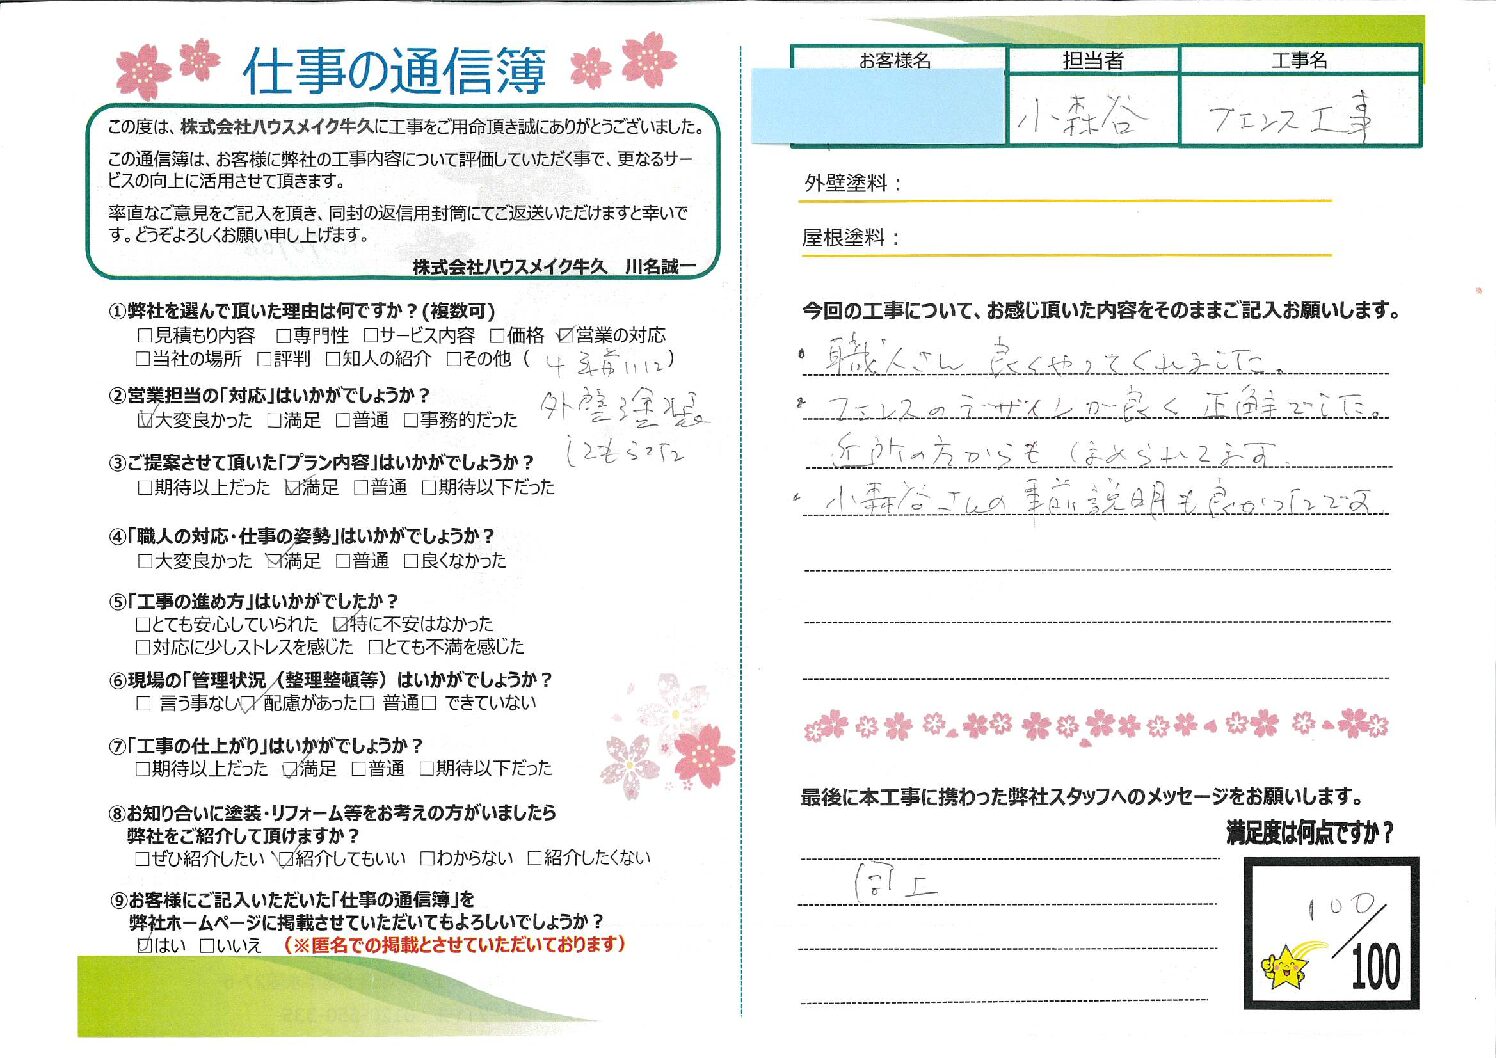 仕事の通信簿
この度は、株式会社ハウスメイク牛久に工事をご用命頂き誠にありがとうございました。
この通信簿は、お客様に弊社の工事内容について評価していただく事で、更なるサー
ビスの向上に活用させて頂きます。
率直なご意見をご記入を頂き、同封の返信用封筒にてご返送いただけますと幸いで
す。どうぞよろしくお願い申し上げます。
株式会社ハウスメイク牛久　川名誠一
①弊社を選んで頂いた理由は何ですか？(複数可)
□見積もり内容　□専門性　□サービス内容　□価格　☑営業の対応
□当社の場所　□評判　□知人の紹介　□その他（　4年前に　）
外壁塗装
してもらった
②営業担当の「対応」はいかがでしょうか？
☑大変良かった　□満足　□普通　□事務的だった
③ご提案させて頂いた「プラン内容」はいかがでしょうか？
□期待以上だった　☑満足　□普通　□期待以下だった
④「職人の対応・仕事の姿勢」はいかがでしょうか？
□大変良かった　☑満足　□普通　□良くなかった
⑤「工事の進め方」はいかがでしたか？
□とても安心していられた　☑特に不安はなかった
□対応に少しストレスを感じた　□とても不満を感じた
⑥現場の「管理状況（整理整頓等）はいかがでしょうか？
□ 言う事なし☑ 配慮があった□ 普通□ できていない
⑦「工事の仕上がり」はいかがでしょうか？
□期待以上だった　☑満足　□普通　□期待以下だった
⑧お知り合いに塗装・リフォーム等をお考えの方がいましたら
弊社をご紹介して頂けますか？
□ぜひ紹介したい　☑紹介してもいい　□わからない　□紹介したくない
⑨お客様にご記入いただいた「仕事の通信簿」を
弊社ホームページに掲載させていただいてもよろしいでしょうか？
☑はい　□いいえ　（※匿名での掲載とさせていただいております）
お客様名　担当者　工事名
小森谷　フェンス工事
外壁塗料：
屋根塗料：
今回の工事について、お感じ頂いた内容をそのままご記入お願いします。
・職人さん 良くやってくれました。
・フェンスのデザインが良く 正解でした。
近所の方からも ほめられてます。
・小森谷さんの事前説明も良かったです
最後に本工事に携わった弊社スタッフへのメッセージをお願いします。
満足度は何点ですか？
同上
100
/100